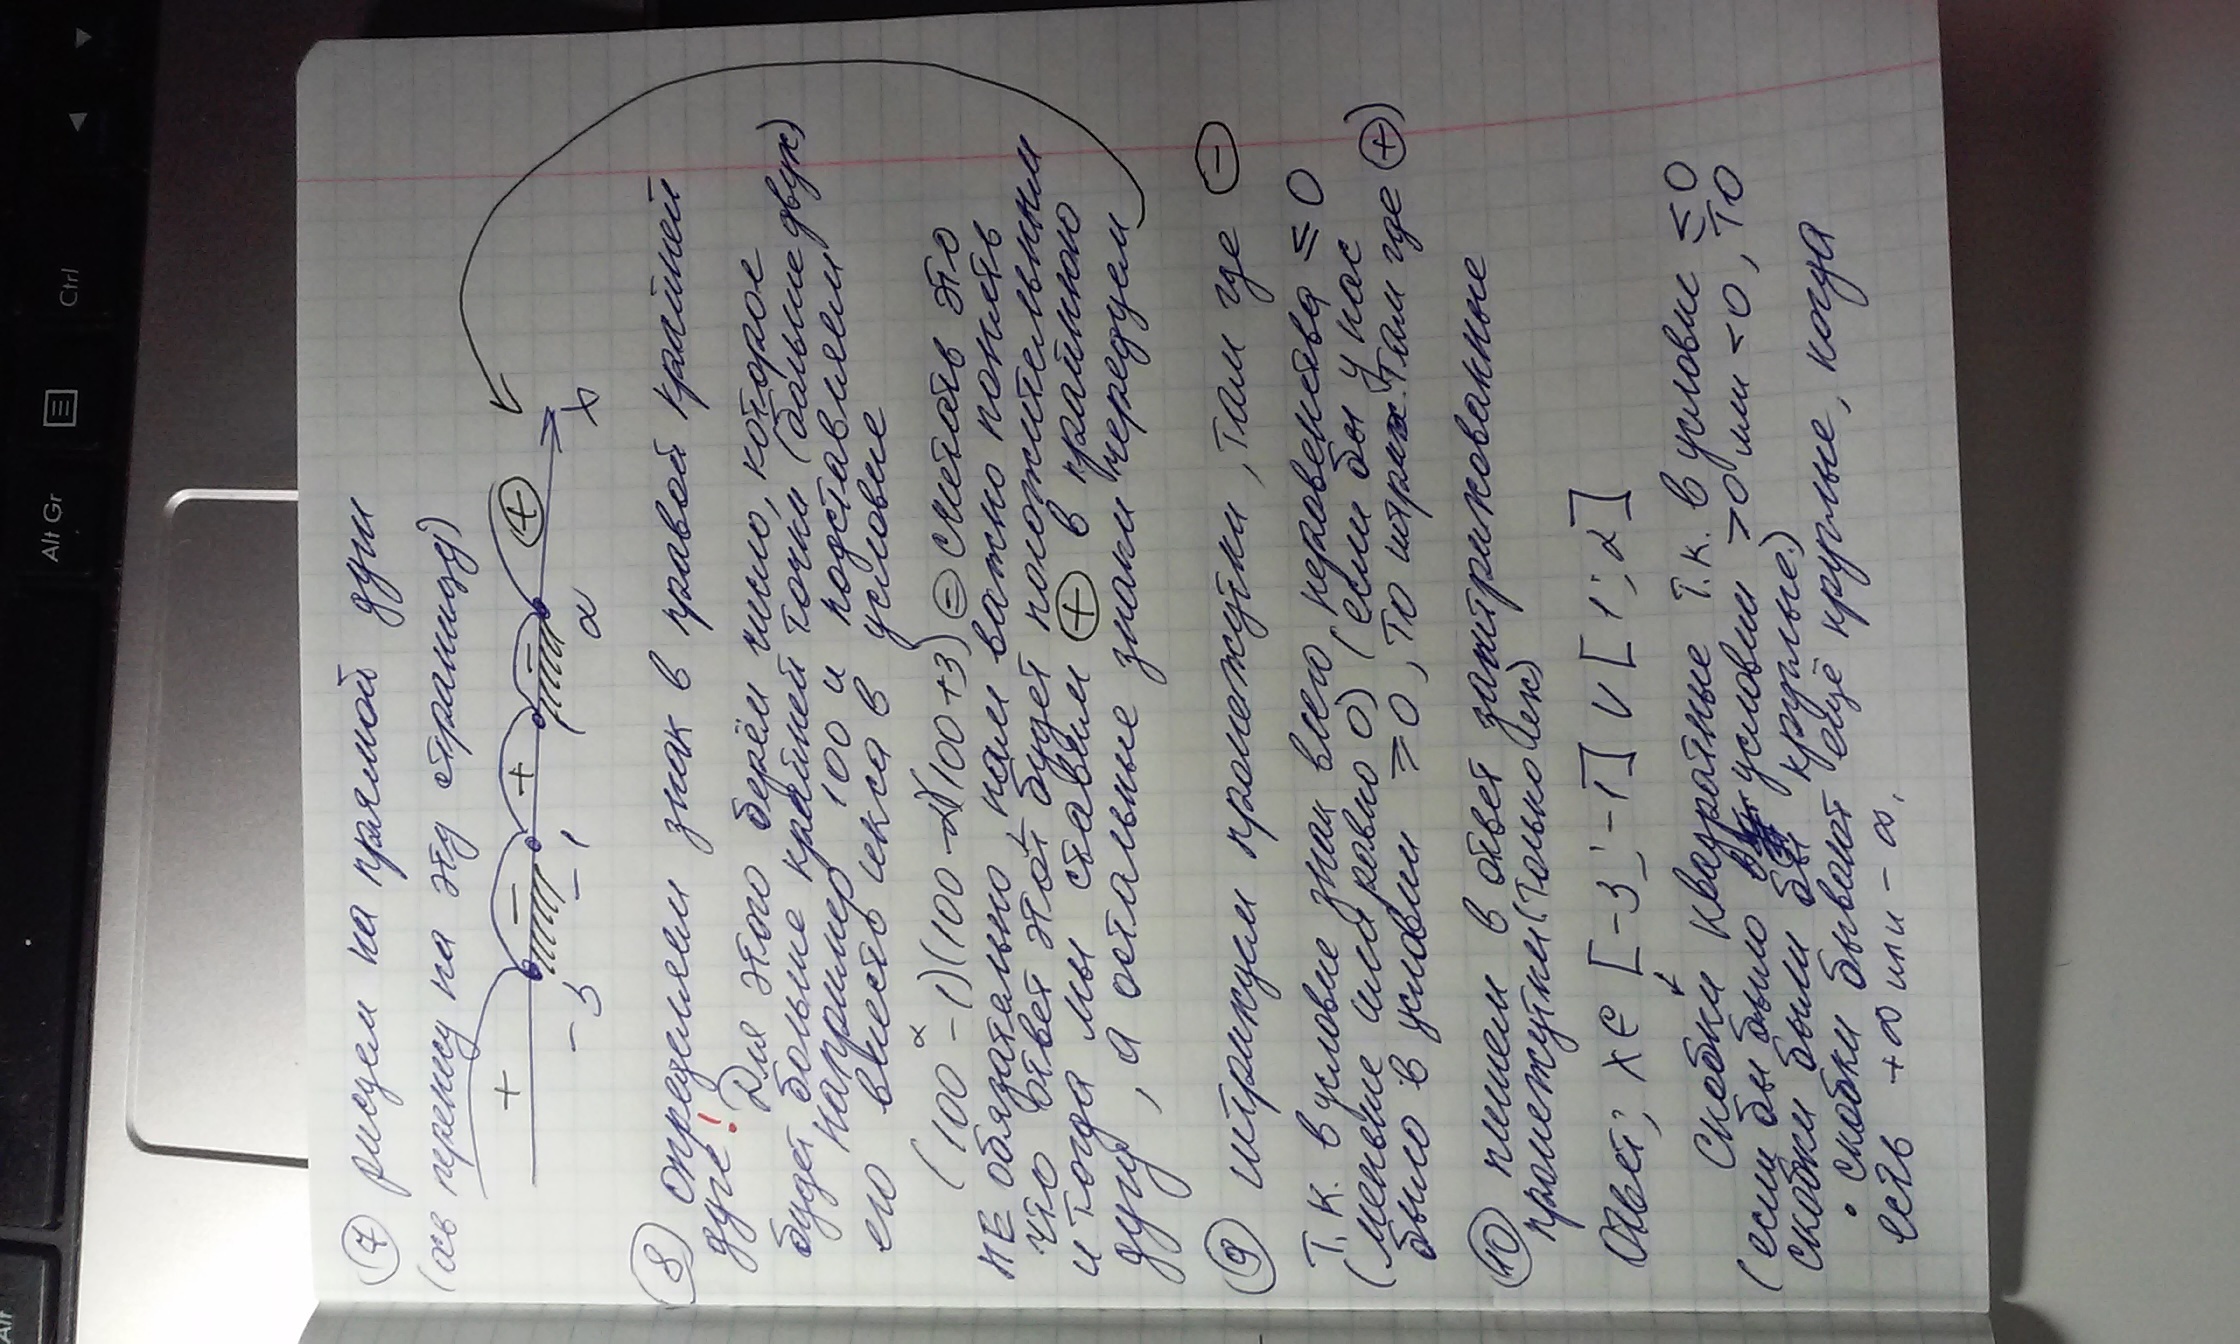 ⑦ рисуем на прямой дуги
(ось перенесу на эту страницу)
+ − + − +
-3 -1 1 2 x
⑧ определяем знак в правой крайней
дуге! Для этого берём число, которое
будет больше крайней точки (больше двух)
например 100 и подставляем
его вместо икса в условие
(100² -1)(100-2)(100+3) = считать это
НЕ обязательно, нам важно понять
что ответ этот будет положительным
и тогда мы ставим + в крайнюю
дугу, а остальные знаки чередуем
⑨ штрихуем промежутки, там где −
Т.к. в условие знак всего неравенства ≤ 0
(меньше или равно 0) (если бы у нас
было в условии ≥ 0, то штрих. там где +)
⑩ пишем в ответ заштрихованные
промежутки (только их)
Ответ: x ∈ [-3; -1] ∪ [1; 2]
Скобки квадратные т.к. в условие ≤ 0
(если бы было в условии > 0 или < 0, то
скобки были бы круглые.)
• скобки бывают ещё круглые, когда
есть +∞ или -∞.
Alt
Alt Gr
Ctrl